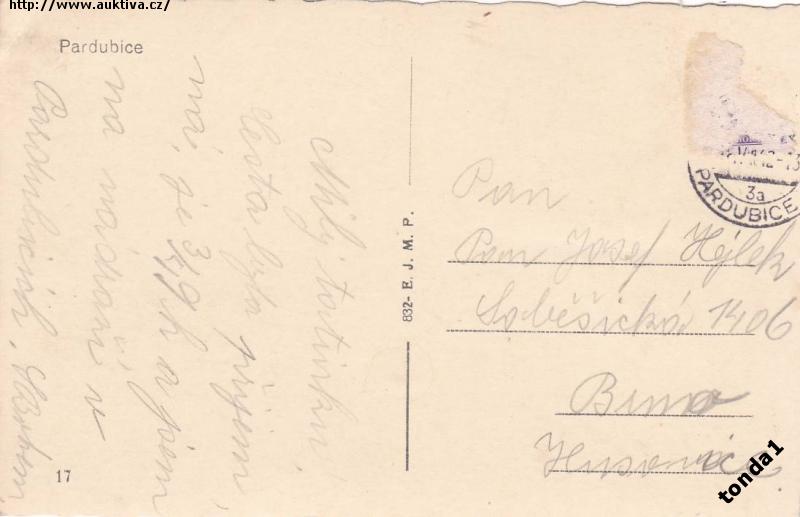 http://www.auktiva.cz/
Pardubice
Milý tatínku!
Cesta byla příjem
ná, je 3/4 9 h a jsem
na nádraží v
Pardubicích.
832- E. J. M. P.
17
3a
PARDUBICE
Pan
Pan Josef Hýlek
Soběšická 1406
Brno
Husovice
tonda1